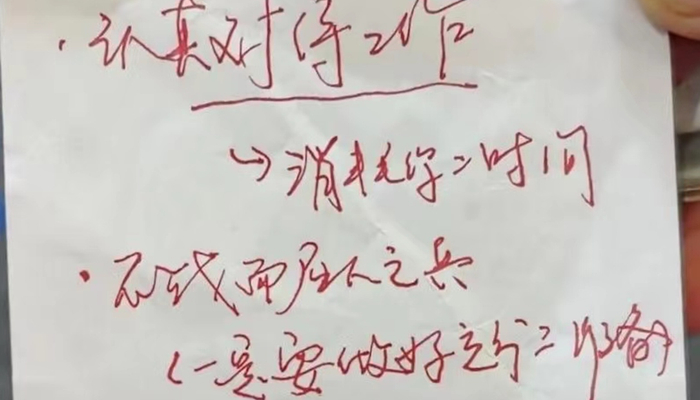 · 认真对待工作
→ 消耗你的时间
· 不战而屈人之兵
(一定要做好充分的准备